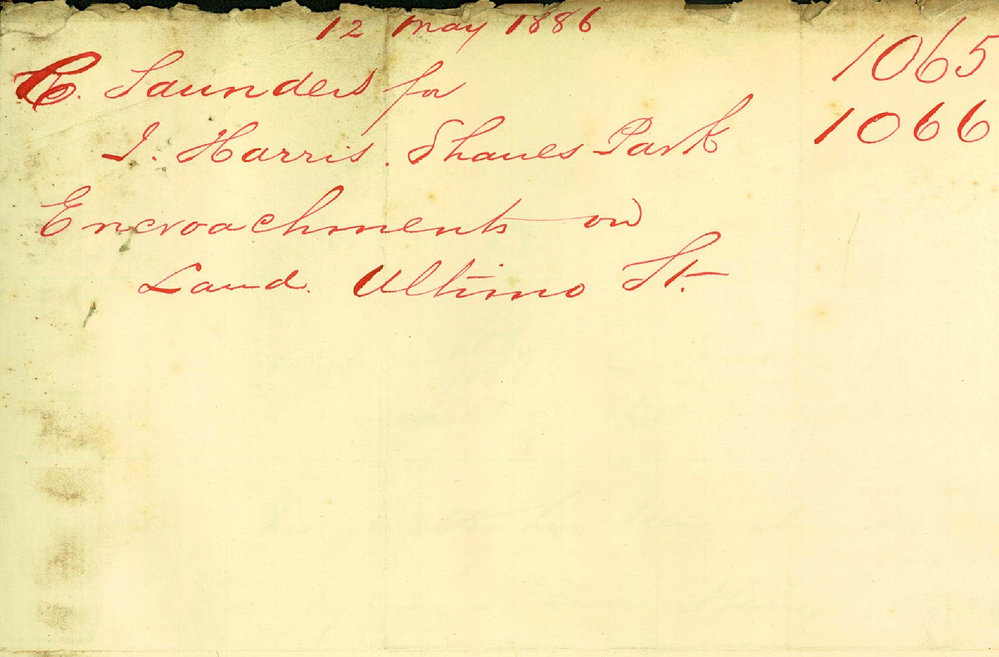 12 May 1886
R. Saunders for
J. Harris. Shanes Park
Encroachments on
Land. Ultimo St.
1065
1066